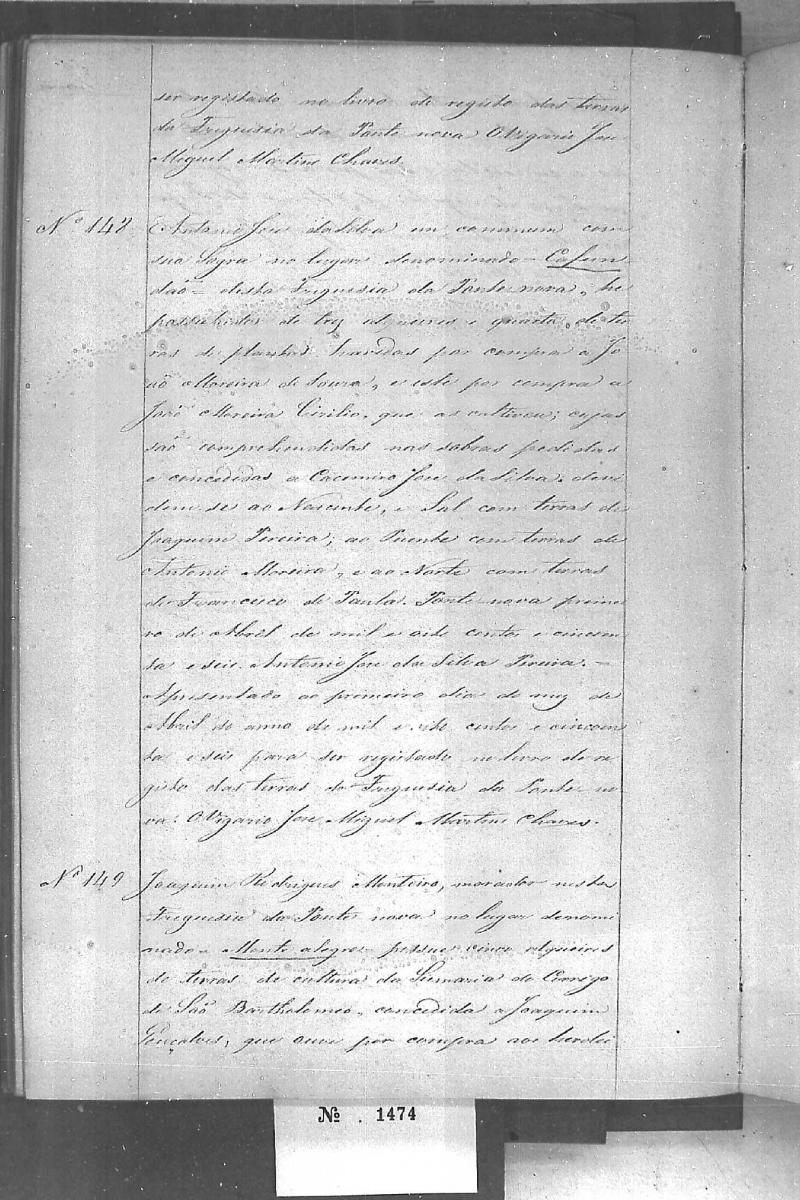 ser registado no livro de registo das terras
da Freguesia da Ponte nova O Vigario Jose
Miguel Martins Chaves.
Nº 148 Antonio Jose da Silva em commum com
sua Sogra no lugar denominado = Cafun
dão = desta Freguesia da Ponte nova, he
possuhidor de trez alqueires e quarta de ter
ras de plantas havidas por compra a Jo
aõ Moreira de Souza, e este por compra a
Joaõ Moreira Cirilio, que as cultivou; cujas
saõ comprehendidas nas sobras pedidas
e concedidas a Cacemiro Jose da Silva. devi
dem se ao Nascente, e Sul com terras de
Joaquim Pereira; ao Puente com terras de
Antonio Moreira, e ao Norte com terras
de Francisco de Paula. Ponte nova primei
ro de Abril de mil e oito centos e cincoen
ta e seis. Antonio Jose da Silva Pereira. =
Apresentado ao primeiro dia do mez de
Abril do anno de mil e oito centos e cincoen
ta e seis para ser registado no livro de re
gisto das terras da Freguesia da Ponte no
va. O Vigario Jose Miguel Martins Chaves.
Nº 149 Joaquim Rodrigues Monteiro, morador nesta
Freguesia da Ponte nova no lugar denomi
nado = Monte alegre = possue cinco alqueires
de terras de cultura da Sismaria do Corrego
de Saõ Bartholomeo, concedida a Joaquim
Gonçalves, que ouve por compra aos herdei
Nº . 1474